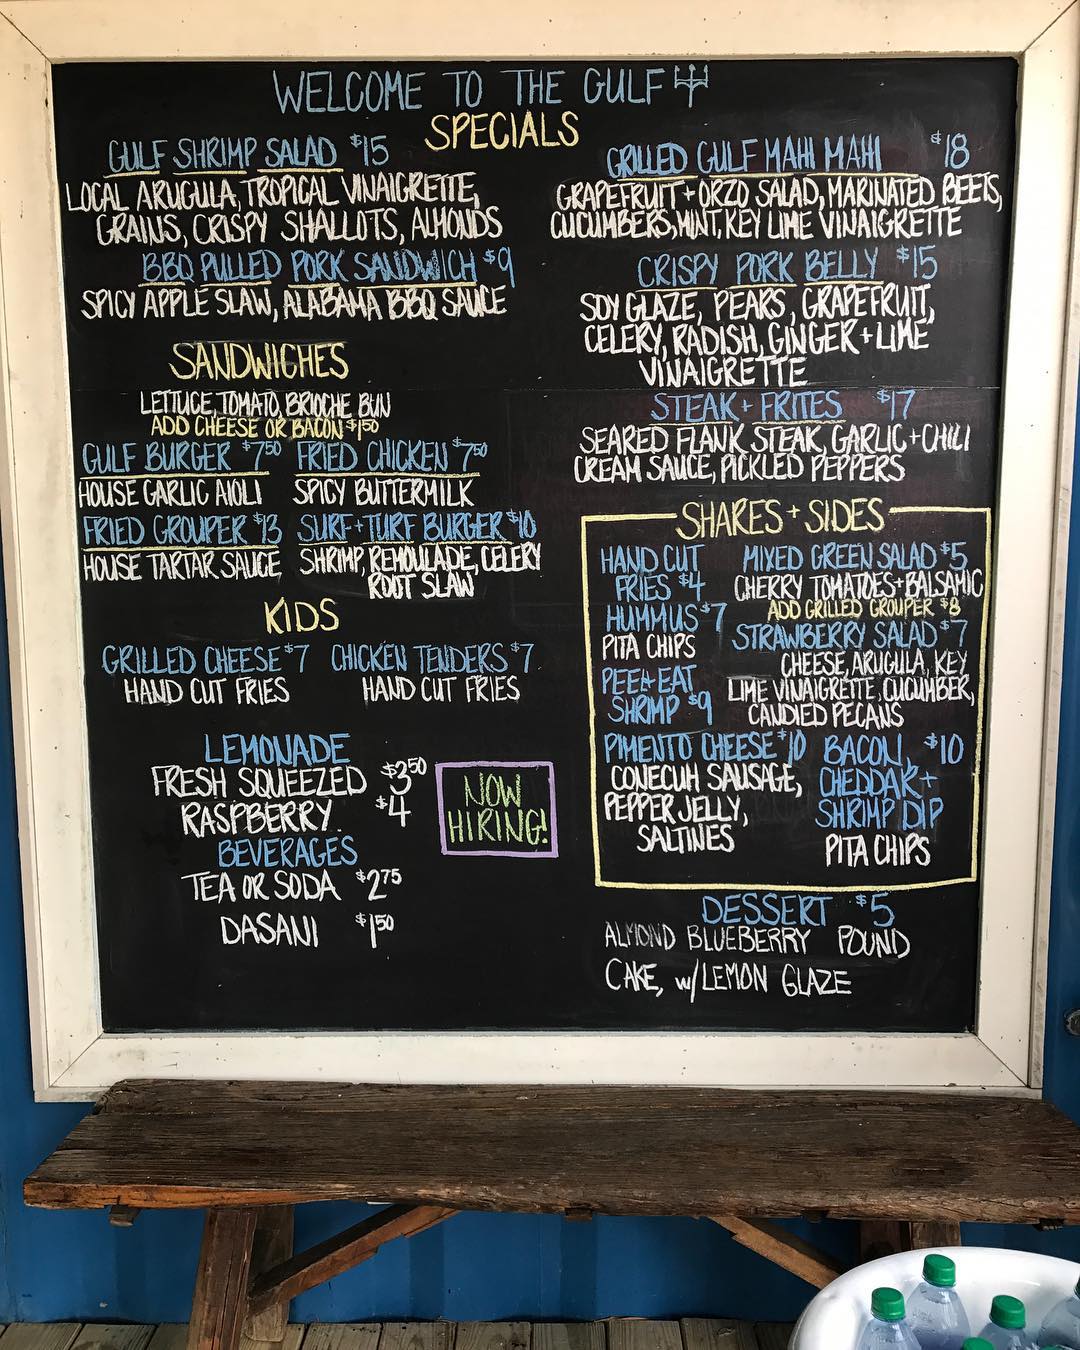 WELCOME TO THE GULF
SPECIALS
GULF SHRIMP SALAD $15
LOCAL ARUGULA, TROPICAL VINAIGRETTE,
GRAINS, CRISPY SHALLOTS, ALMONDS
BBQ PULLED PORK SANDWICH $9
SPICY APPLE SLAW, ALABAMA BBQ SAUCE
GRILLED GULF MAHI MAHI $18
GRAPEFRUIT + ORZO SALAD, MARINATED BEETS,
CUCUMBERS, MINT, KEY LIME VINAIGRETTE
CRISPY PORK BELLY $15
SOY GLAZE, PEARS, GRAPEFRUIT,
CELERY, RADISH, GINGER + LIME
VINAIGRETTE
STEAK + FRITES $17
SEARED FLANK STEAK, GARLIC + CHILI
CREAM SAUCE, PICKLED PEPPERS
SANDWICHES
LETTUCE, TOMATO, BRIOCHE BUN
ADD CHEESE OR BACON $1.50
GULF BURGER $7.50
HOUSE GARLIC AIOLI
FRIED CHICKEN $7.50
SPICY BUTTERMILK
FRIED GROUPER $13
HOUSE TARTAR SAUCE
SURF + TURF BURGER $10
SHRIMP, REMOULADE, CELERY
ROOT SLAW
KIDS
GRILLED CHEESE $7
HAND CUT FRIES
CHICKEN TENDERS $7
HAND CUT FRIES
LEMONADE
FRESH SQUEEZED $3.50
RASPBERRY $4
BEVERAGES
TEA OR SODA $2.75
DASANI $1.50
NOW
HIRING!
SHARES + SIDES
HAND CUT
FRIES $4
HUMMUS $7
PITA CHIPS
PEEL + EAT
SHRIMP $9
PIMENTO CHEESE $10
CONECUH SAUSAGE,
PEPPER JELLY,
SALTINES
MIXED GREEN SALAD $5
CHERRY TOMATOES + BALSAMIC
ADD GRILLED GROUPER $8
STRAWBERRY SALAD $7
CHEESE, ARUGULA, KEY
LIME VINAIGRETTE, CUCUMBER,
CANDIED PECANS
BACON, $10
CHEDDAR +
SHRIMP DIP
PITA CHIPS
DESSERT $5
ALMOND BLUEBERRY POUND
CAKE, w/ LEMON GLAZE